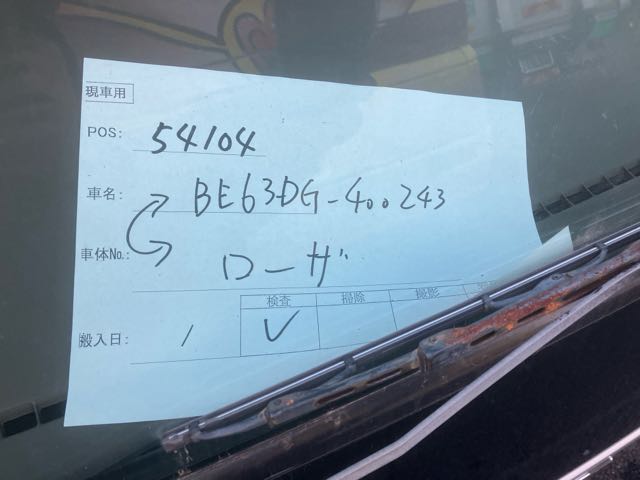 現車用
POS: 54104
車名: BE63DG-400243
車体No.: ローザ
検査 掃除 撮影
搬入日: / ✓